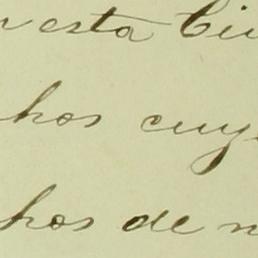 n esta Ciu
hos cuy
hos de n